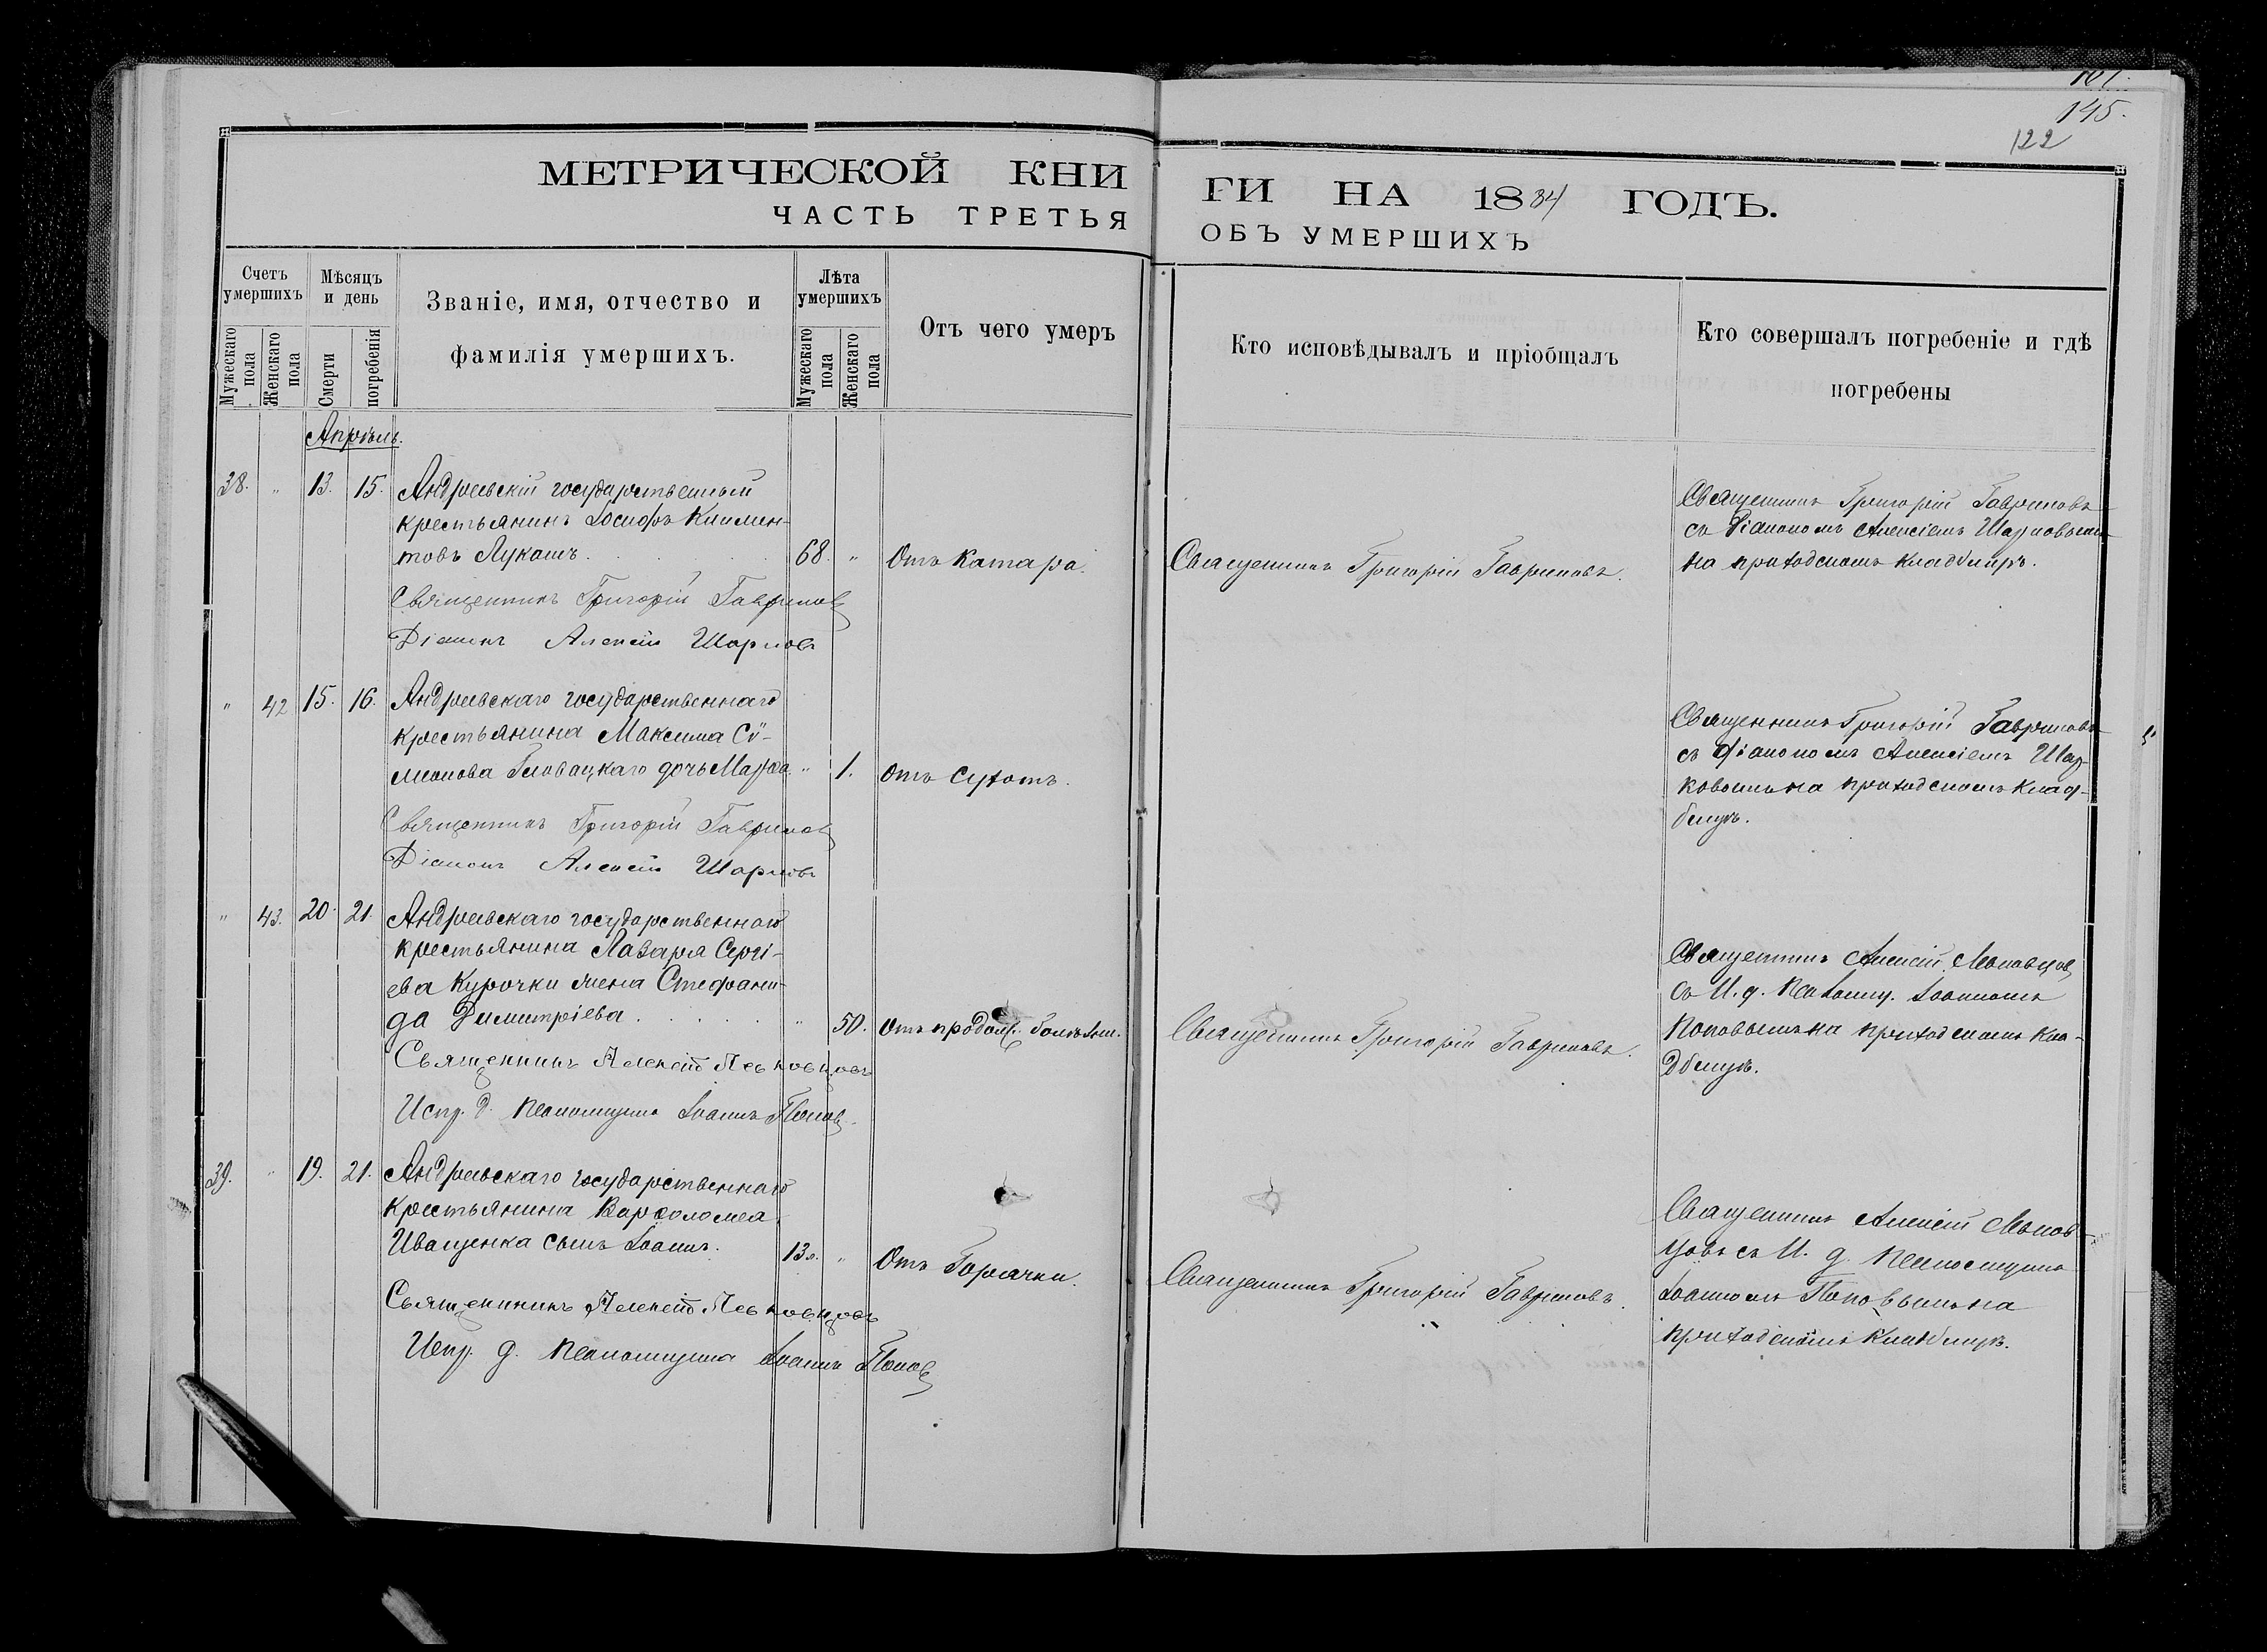 145.
122
МЕТРИЧЕСКОЙ КНИ
ЧАСТЬ ТРЕТЬЯ
ГИ НА 1884 ГОДЪ.
ОБЪ УМЕРШИХЪ
Счетъ умершихъ
Мужескаго пола
Женскаго пола
Мѣсяцъ и день
Смерти
погребенія
Званіе, имя, отчество и
фамилія умершихъ.
Лѣта умершихъ
Мужескаго пола
Женскаго пола
Отъ чего умеръ
Кто исповѣдывалъ и пріобщалъ
Кто совершалъ погребеніе и гдѣ
погребены
Апрѣль.
38. " 13. 15. Андреевскій государственный
крестьянинъ Іосифъ Климен-
товъ Лукашъ. 68. " Отъ катара.
Священникъ Григорій Гавриловъ.
Священникъ Григорій Гавриловъ
съ діакономъ Алексіемъ Шарковымъ
на приходскомъ кладбищѣ.
Священникъ Григорій Гавриловъ
Діаконъ Алексій Шарковъ
" 42 15. 16. Андреевскаго государственнаго
крестьянина Максима Сѵ-
меонова Головацкаго дочь Марфа. " 1. Отъ сухотъ.
Священникъ Григорій Гавриловъ
съ діакономъ Алексіемъ Шар-
ковымъ на приходскомъ клад-
бищѣ.
Священникъ Григорій Гавриловъ
Діаконъ Алексій Шарковъ
" 43. 20. 21. Андреевскаго государственнаго
крестьянина Лазаря Сергі-
ева Курочки жена Стефани-
да Димитріева. " 50. Отъ продолж. болѣзни.
Священникъ Григорій Гавриловъ.
Священникъ Алексій Левковцовъ
съ И. д. псаломщ. Іоанномъ
Поповымъ на приходскомъ кла-
дбищѣ.
Священникъ Алексій Левковцовъ
Испр. д. псаломщика Іоаннъ Поповъ.
39. " 19. 21. Андреевскаго государственнаго
крестьянина Варфоломея
Иващенка сынъ Іоаннъ. 13 л. " Отъ Горячки.
Священникъ Григорій Гавриловъ.
Священникъ Алексій Левков-
цовъ съ И. д. псаломщика
Іоанномъ Поповымъ на
приходскомъ кладбищѣ.
Священникъ Алексій Левковцовъ
Испр. д. псаломщика Іоаннъ Поповъ